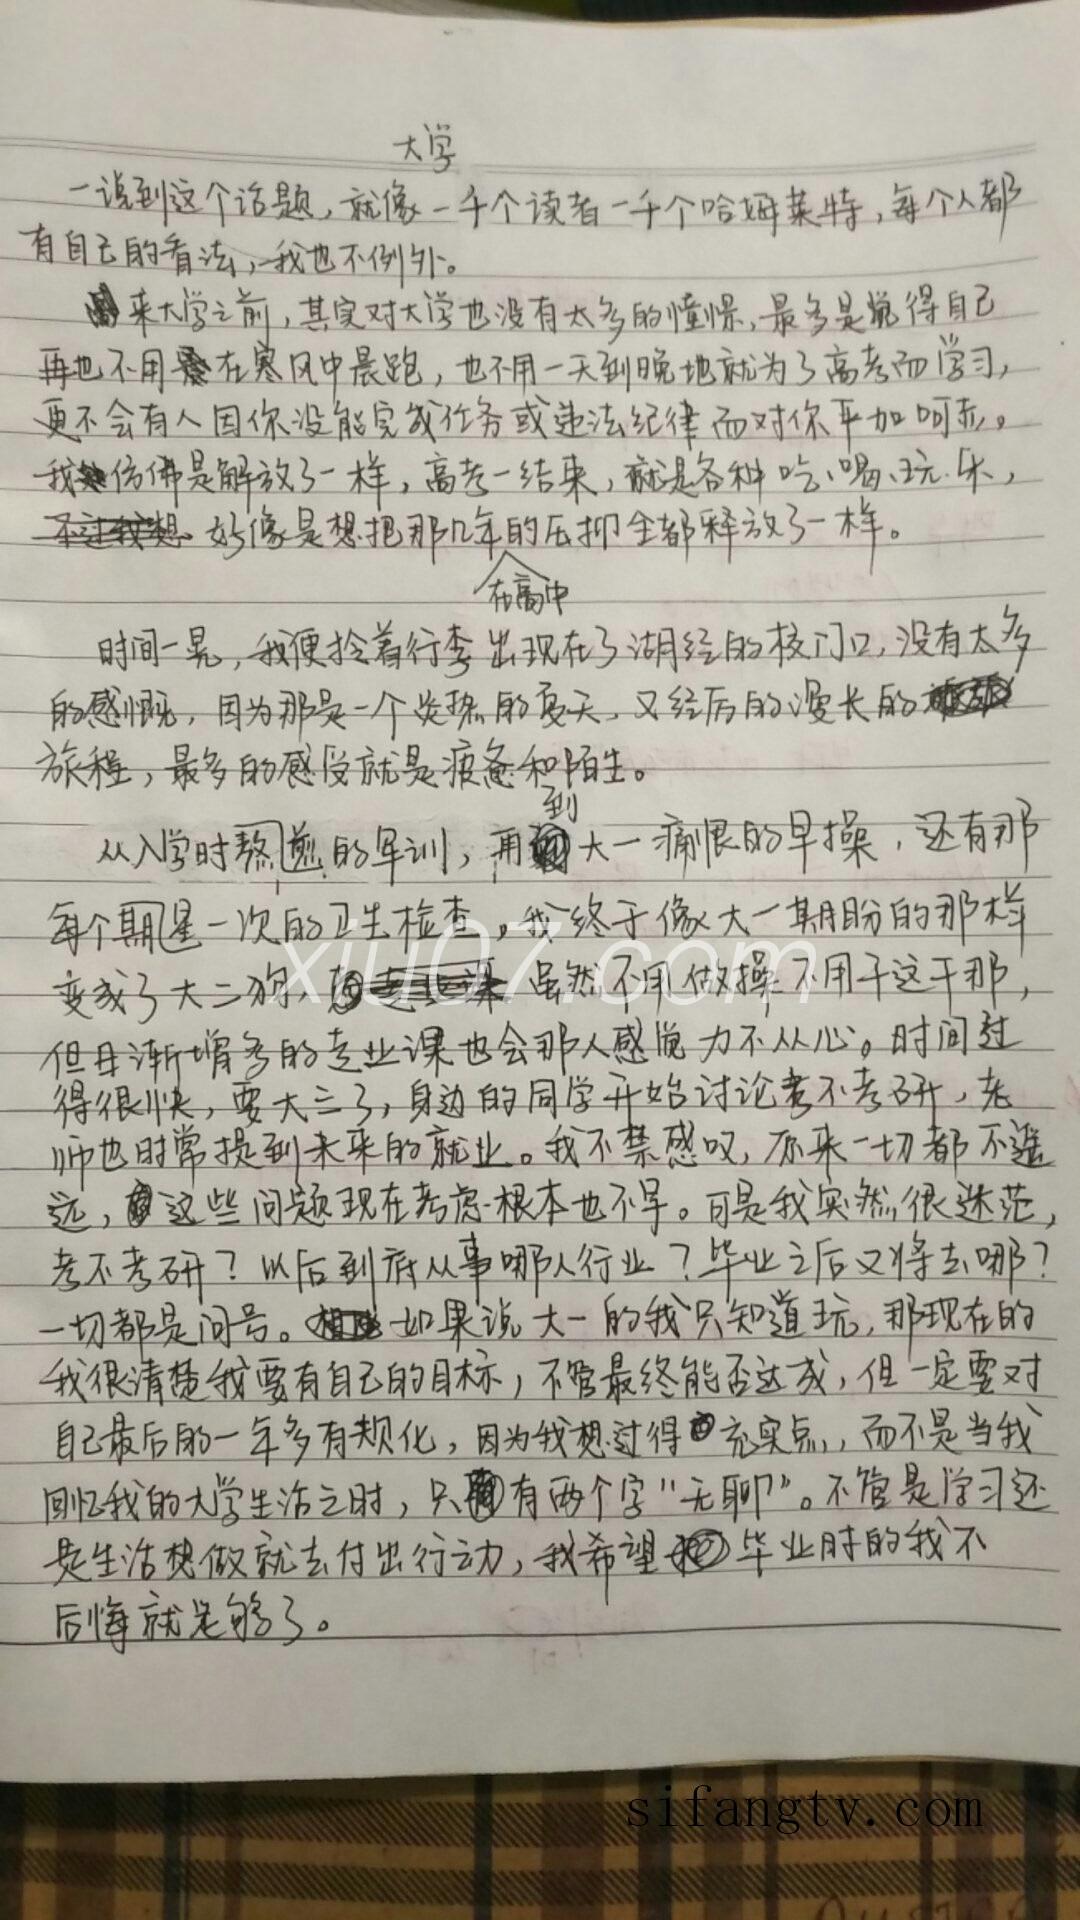 大学
一说到这个话题，就像一千个读者一千个哈姆莱特，每个人都
有自己的看法，我也不例外。
来大学之前，其实对大学也没有太多的憧憬，最多是觉得自己
再也不用在寒风中晨跑，也不用一天到晚地就为了高考而学习，
更不会有人因你没能完成任务或违法纪律而对你平加呵赤。
我仿佛是解放了一样，高考一结束，就是各种吃、喝、玩、乐，
不过我想 好像是想把那几年的压抑全都释放了一样。
在高中
时间一晃，我便拎着行李出现在了湖经的校门口，没有太多
的感慨，因为那是一个炎热的夏天，又经历的漫长的
旅程，最多的感受就是疲惫和陌生。
到
从入学时熬煎的军训，再大一痛恨的早操，还有那
每个期星一次的卫生检查，我终于像大一期盼的那样
变成了大二狗，虽然不用做操不用干这干那，
但日渐增多的专业课也会那人感觉力不从心。时间过
得很快，要大三了，身边的同学开始讨论考不考研，老
师也时常提到未来的就业。我不禁感叹，原来一切都不遥
远，这些问题现在考虑根本也不早。可是我突然很迷茫，
考不考研？以后到底从事哪人行业？毕业之后又将去哪？
一切都是问号。如果说大一的我只知道玩，那现在的
我很清楚我要有自己的目标，不管最终能否达成，但一定要对
自己最后的一年多有规化，因为我想过得充实点，而不是当我
回忆我的大学生活之时，只有两个字“无聊”。不管是学习还
是生活想做就去付出行动，我希望毕业时的我不
后悔就是够了。
xiu07.com
sifangtv.com